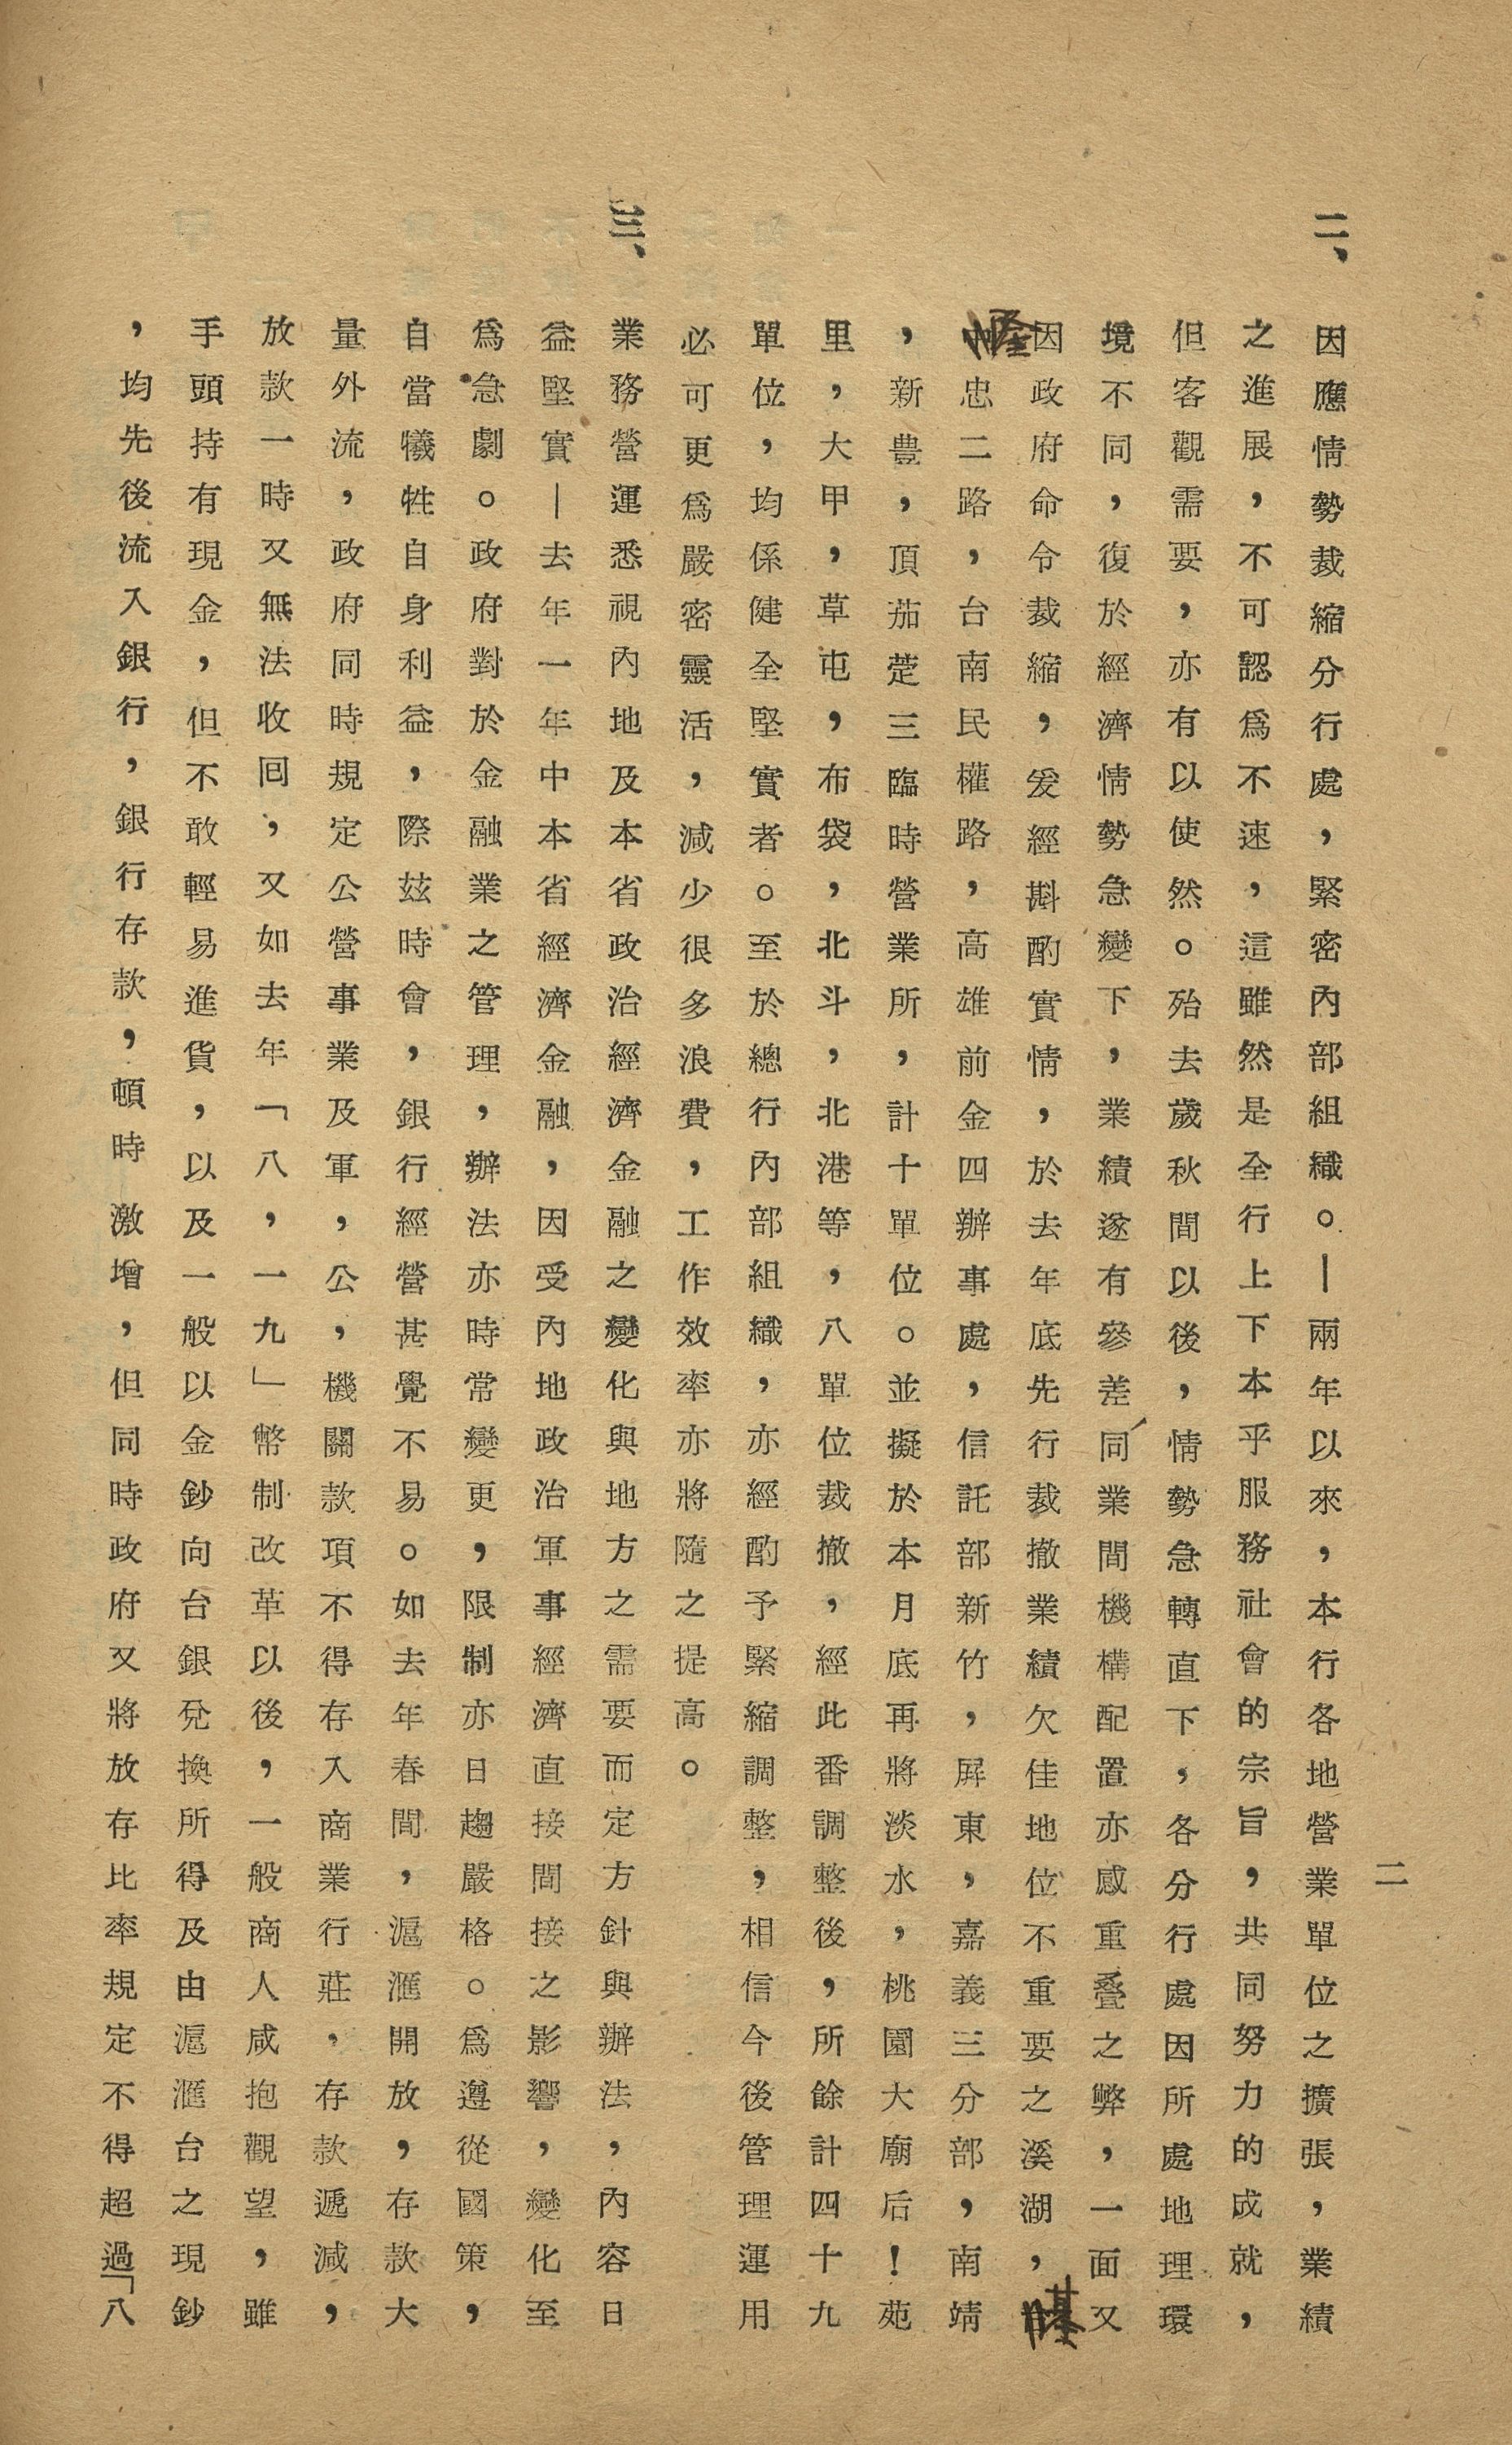 二
二、因應情勢裁縮分行處，緊密內部組織。—兩年以來，本行各地營業單位之擴張，業績
之進展，不可認爲不速，這雖然是全行上下本乎服務社會的宗旨，共同努力的成就，
但客觀需要，亦有以使然。殆去歲秋間以後，情勢急轉直下，各分行處因所處地理環
境不同，復於經濟情勢急變下，業績遂有參差同業間機構配置亦感重叠之弊，一面又
因政府命令裁縮，爰經斟酌實情，於去年底先行裁撤業績欠佳地位不重要之溪湖，基
隆忠二路，台南民權路，高雄前金四辦事處，信託部新竹，屛東，嘉義三分部，南靖
，新豊，頂茄萣三臨時營業所，計十單位。並擬於本月底再將淡水，桃園大廟后！苑
里，大甲，草屯，布袋，北斗，北港等，八單位裁撤，經此番調整後，所餘計四十九
單位，均係健全堅實者。至於總行內部組織，亦經酌予緊縮調整，相信今後管理運用
必可更爲嚴密靈活，減少很多浪費，工作效率亦將隨之提高。
三、業務營運悉視內地及本省政治經濟金融之變化與地方之需要而定方針與辦法，內容日
益堅實—去年一年中本省經濟金融，因受內地政治軍事經濟直接間接之影響，變化至
爲急劇。政府對於金融業之管理，辦法亦時常變更，限制亦日趨嚴格。爲遵從國策，
自當犧牲自身利益，際茲時會，銀行經營甚覺不易。如去年春間，滬滙開放，存款大
量外流，政府同時規定公營事業及軍，公，機關款項不得存入商業行莊，存款遞減，
放款一時又無法收回，又如去年「八，一九」幣制改革以後，一般商人咸抱觀望，雖
手頭持有現金，但不敢輕易進貨，以及一般以金鈔向台銀兌換所得及由滬滙台之現鈔
，均先後流入銀行，銀行存款，頓時激增，但同時政府又將放存比率規定不得超過「八